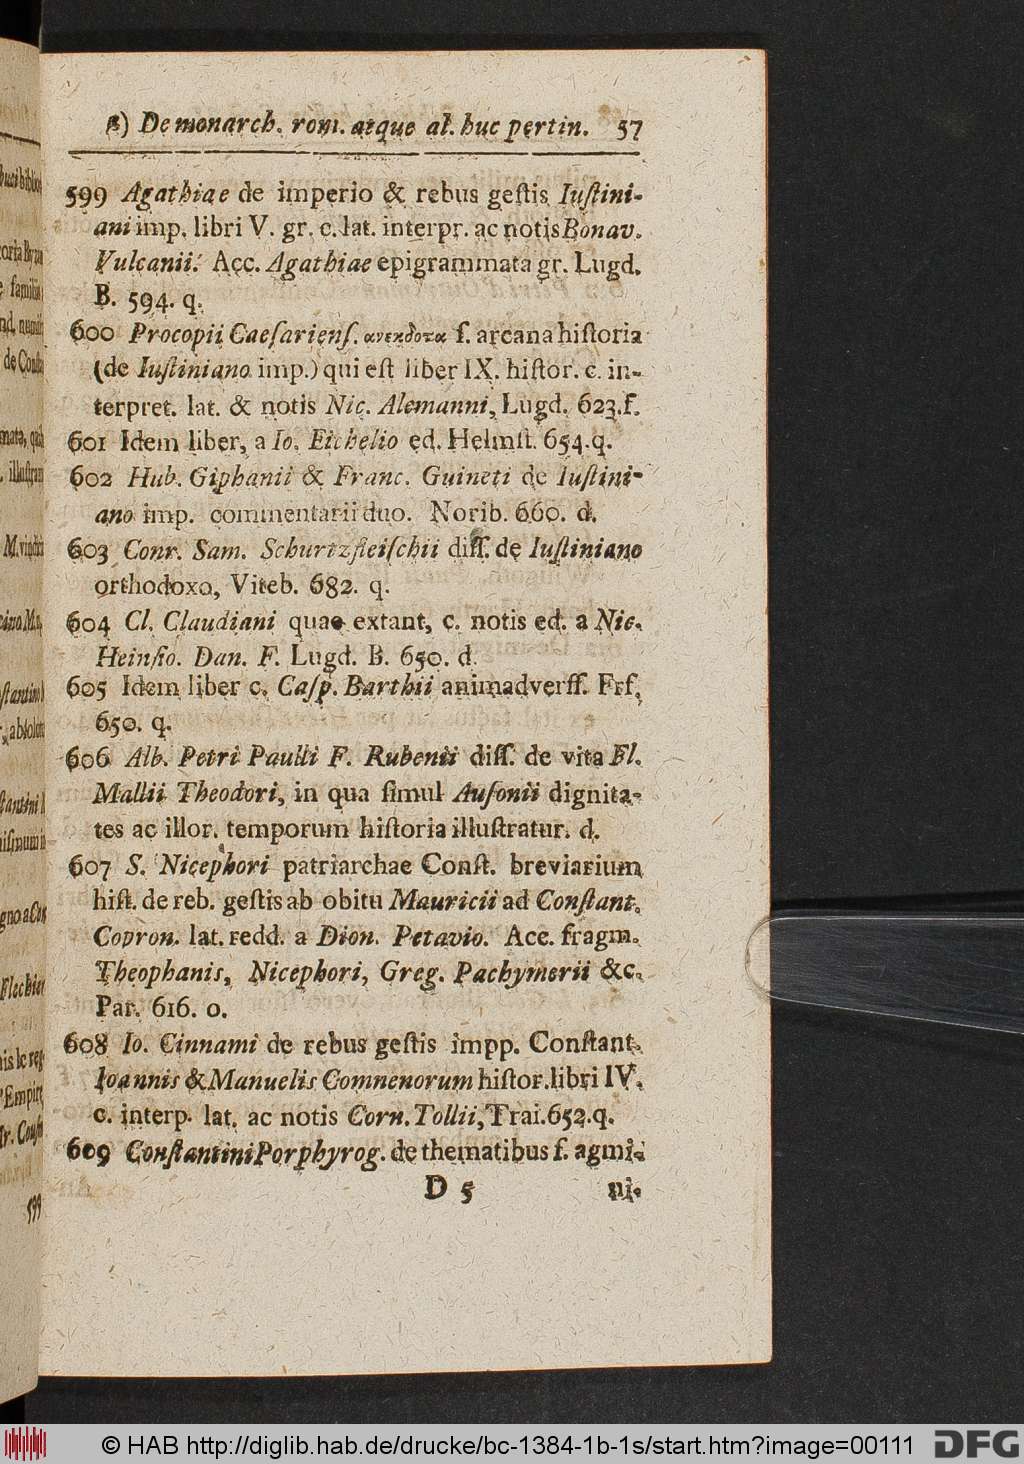 β) De monarch. rom. atque al. huc pertin. 57
599 Agathiae de imperio & rebus geſtis Iuſtini-
ani imp. libri V. gr. c. lat. interpr. ac notis Bonav.
Vulcanii. Acc. Agathiae epigrammata gr. Lugd.
B. 594. q.
600 Procopii Caeſarienſ. ανεκδοτα ſ. arcana hiſtoria
(de Iuſtiniano imp.) qui eſt liber IX. hiſtor. c. in-
terpret. lat. & notis Nic. Alemanni, Lugd. 623. f.
601 Idem liber, a Io. Eichelio ed. Helmſt. 654. q.
602 Hub. Giphanii & Franc. Guineti de Iuſtini-
ano imp. commentarii duo. Norib. 660. d.
603 Conr. Sam. Schurtzfleiſchii diſſ. de Iuſtiniano
orthodoxo, Viteb. 682. q.
604 Cl. Claudiani quae extant, c. notis ed. a Nic.
Heinſio. Dan. F. Lugd. B. 650. d.
605 Idem liber c. Caſp. Barthii animadverſſ. Frf.
650. q.
606 Alb. Petri Paulli F. Rubenii diſſ. de vita Fl.
Mallii Theodori, in qua ſimul Auſonii dignita-
tes ac illor. temporum hiſtoria illuſtratur. d.
607 S. Nicephori patriarchae Conſt. breviarium
hiſt. de reb. geſtis ab obitu Mauricii ad Conſtant.
Copron. lat. redd. a Dion. Petavio. Acc. fragm.
Theophanis, Nicephori, Greg. Pachymerii &c.
Par. 616. o.
608 Io. Cinnami de rebus geſtis impp. Conſtant.
Ioannis & Manuelis Comnenorum hiſtor. libri IV.
c. interp. lat. ac notis Corn. Tollii, Trai. 652. q.
609 Conſtantini Porphyrog. de thematibus ſ. agmi-
D 5 ni-
599
© HAB http://diglib.hab.de/drucke/bc-1384-1b-1s/start.htm?image=00111
DFG